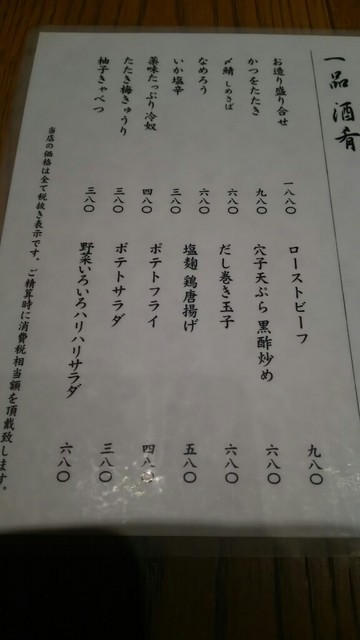 一品 酒肴
お造り盛り合せ 一八八〇
かつをたたき 九八〇
〆鯖 しめさば 六八〇
なめろう 六八〇
いか塩辛 三八〇
薬味たっぷり冷奴 四八〇
たたき梅きゅうり 三八〇
柚子きゃべつ 三八〇
ローストビーフ 九八〇
穴子天ぷら 黒酢炒め 六八〇
だし巻き玉子 六八〇
塩麹 鶏唐揚げ 五八〇
ポテトフライ 四八〇
ポテトサラダ 三八〇
野菜いろいろハリハリサラダ 六八〇
当店の価格は全て税抜き表示です。ご精算時に消費税相当額を頂戴致します。